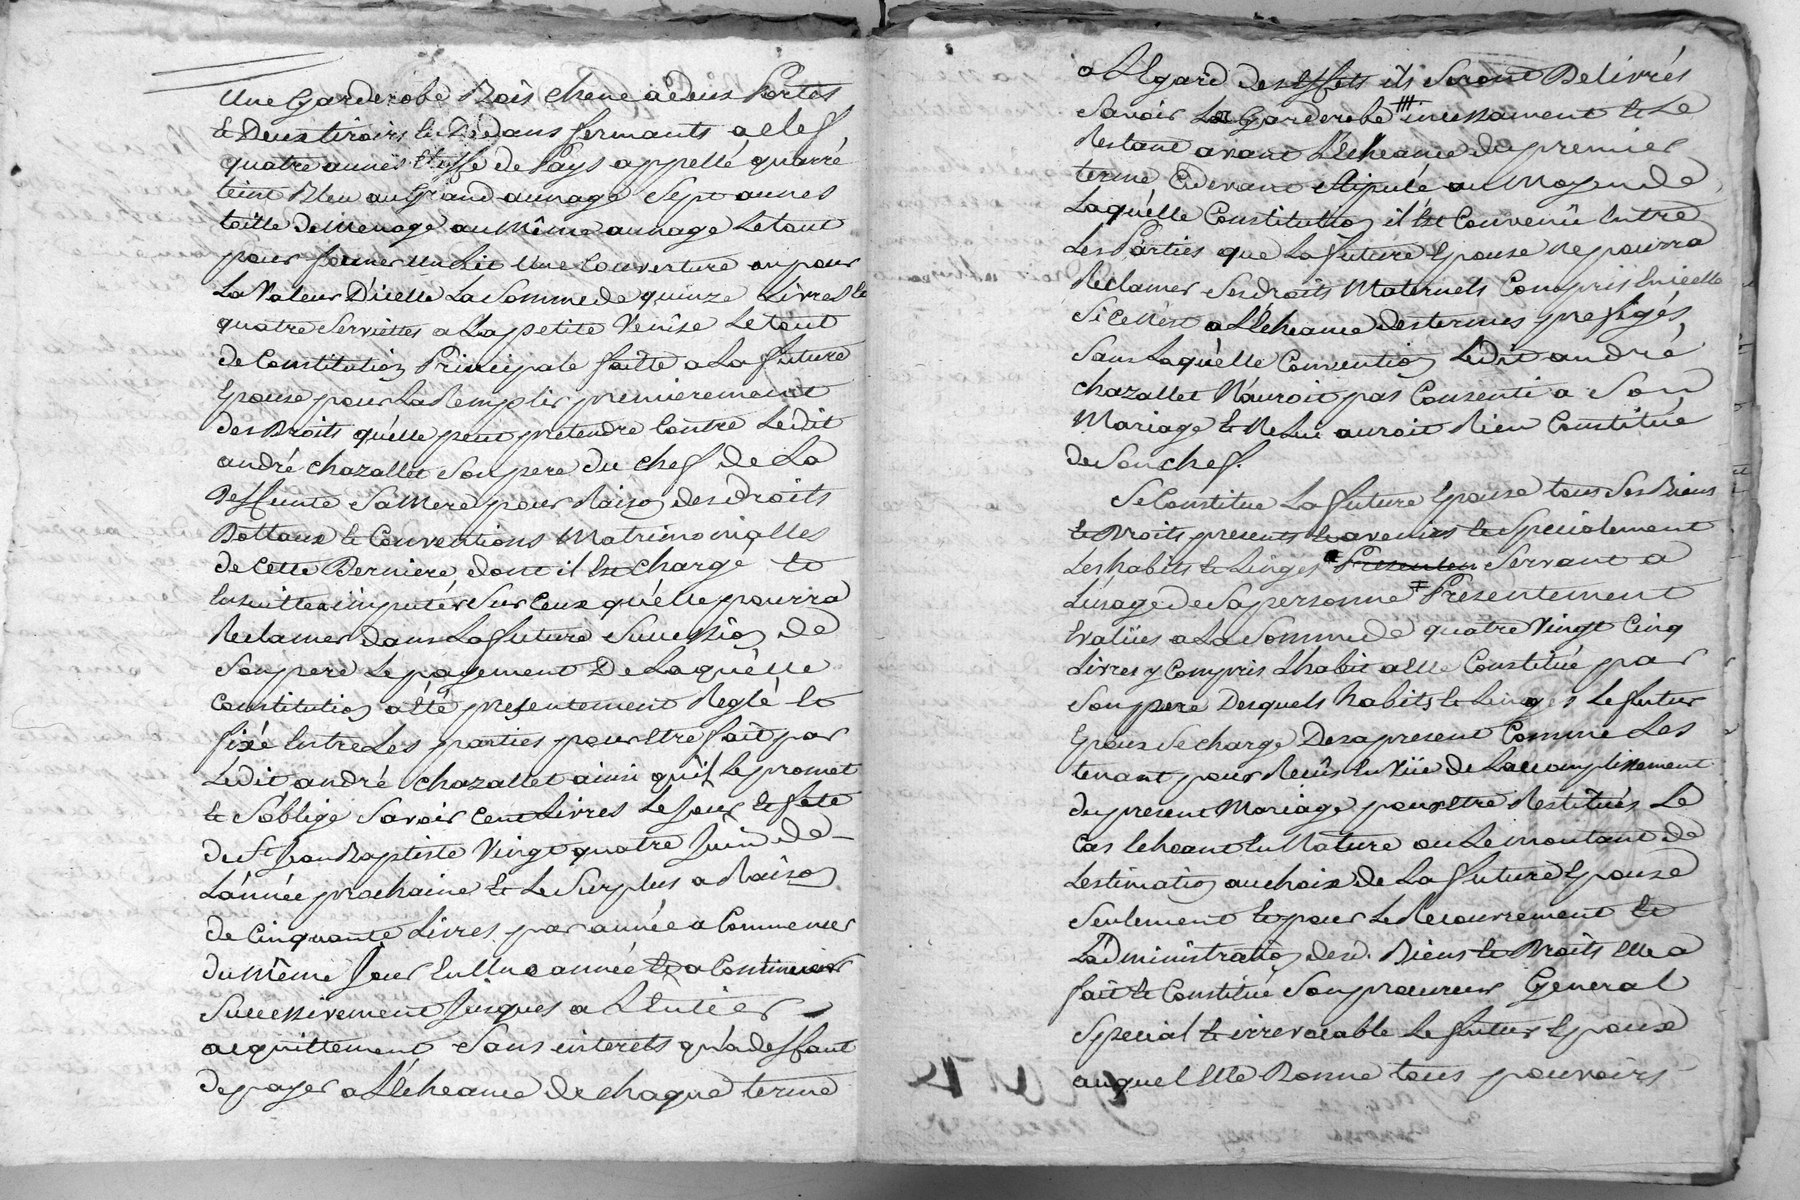 Une Garderobe Bois chene a deux Portes
et Deux tiroirs En Dedans fermants a clef,
quatre aunes Etoffe de Pays appellé quarré
teint Bleu au Grand aunage Sept aunes
toille De Menage au Même aunage Le tout
pour former un Lit Une Couverture ou pour
La Valeur D'icelle La Somme de quinze Livres Et
quatre Serviettes a La petite Venise Le tout
de Constitution Principale faitte a La future
Epouse pour La Remplir premierement
des Droits qu'elle peut pretendre Contre Ledit
andré chazallet Son pere du chef de La
Deffunte Sa Mere pour Raison des droits
Dottaux et Conventions Matrimonialles
de Cette Derniere dont il Est charge et
Ensuitte a imputer Sur Ceux qu'elle pourra
Reclamer dans La future Succession de
Son pere Le payement De Laquelle
Constitution a été presentement Reglé et
fixé Entre Les parties pour Etre fait par
Ledit andré chazallet ainsi qu'il Le promet
et S'oblige Savoir Cent Livres Le Jour et fete
de St Jean Baptiste Vingt quatre Juin de
L'année prochaine et Le Surplus a Raison
de Cinquante Livres par année a Commencer
du Même Jour En Une année et a Continuer
Successivement Jusques a L'Entier
acquittement Sans interets qu'a deffaut
de payer a L'Echeance de chaque terme
a L'Egard des Effets ils Seront Delivrés
Savoir La Garderobe incessament et Le
Restant avant L'Echeance du premier
terme Cydevant Stipulé au Moyen de
Laquelle Constitution il Est Convenû Entre
Les Parties que La future Epouse ne pourra
Reclamer Ses droits Maternels Compris En icelle
Si Ce N'est a L'Echeance des termes prefigés,
Sans Laquelle Convention Ledit andré
chazallet N'auroit pas Consenti a Son
Mariage et Ne Lui auroit Rien Constitué
de Son chef.
Se Constitue La future Epouse tous Ses Biens
et Droits presents et avenirs et Specialement
Les habits et Linges Presentem Servant a
L'usage de Sa personne ‡ Presentement
Evalüés a La Somme de quatre Vingt Cinq
Livres y Compris L'habit a Elle Constitué par
Son pere Desquels habits et Linges Le futur
Epoux Se charge Des a present Comme Les
tenant pour Recûs En Vüe de L'accomplissement
du present Mariage pour Etre Restitués Le
Cas Echeant En Nature ou Le montant de
L'estimation au choix de La future Epouse
Seulement et pour Le Recouvrement et
L'administration desd. Biens et Droits Elle a
fait et Constitué Son procureur General
Special et irrevocable Le futur Epoux
auquel Elle Donne tous pouvoirs